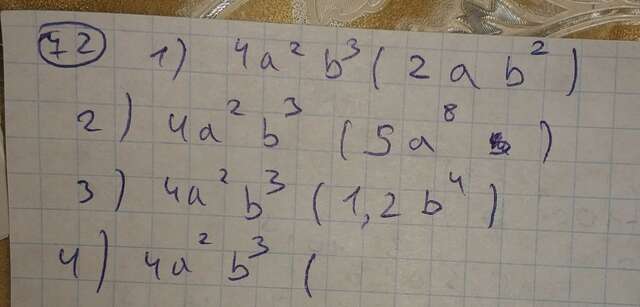 72 1) 4a² b³ ( 2 a b² )
2) 4a² b³ ( 5a⁸ )
3) 4a² b³ ( 1,2 b⁴ )
4) 4a² b³ (